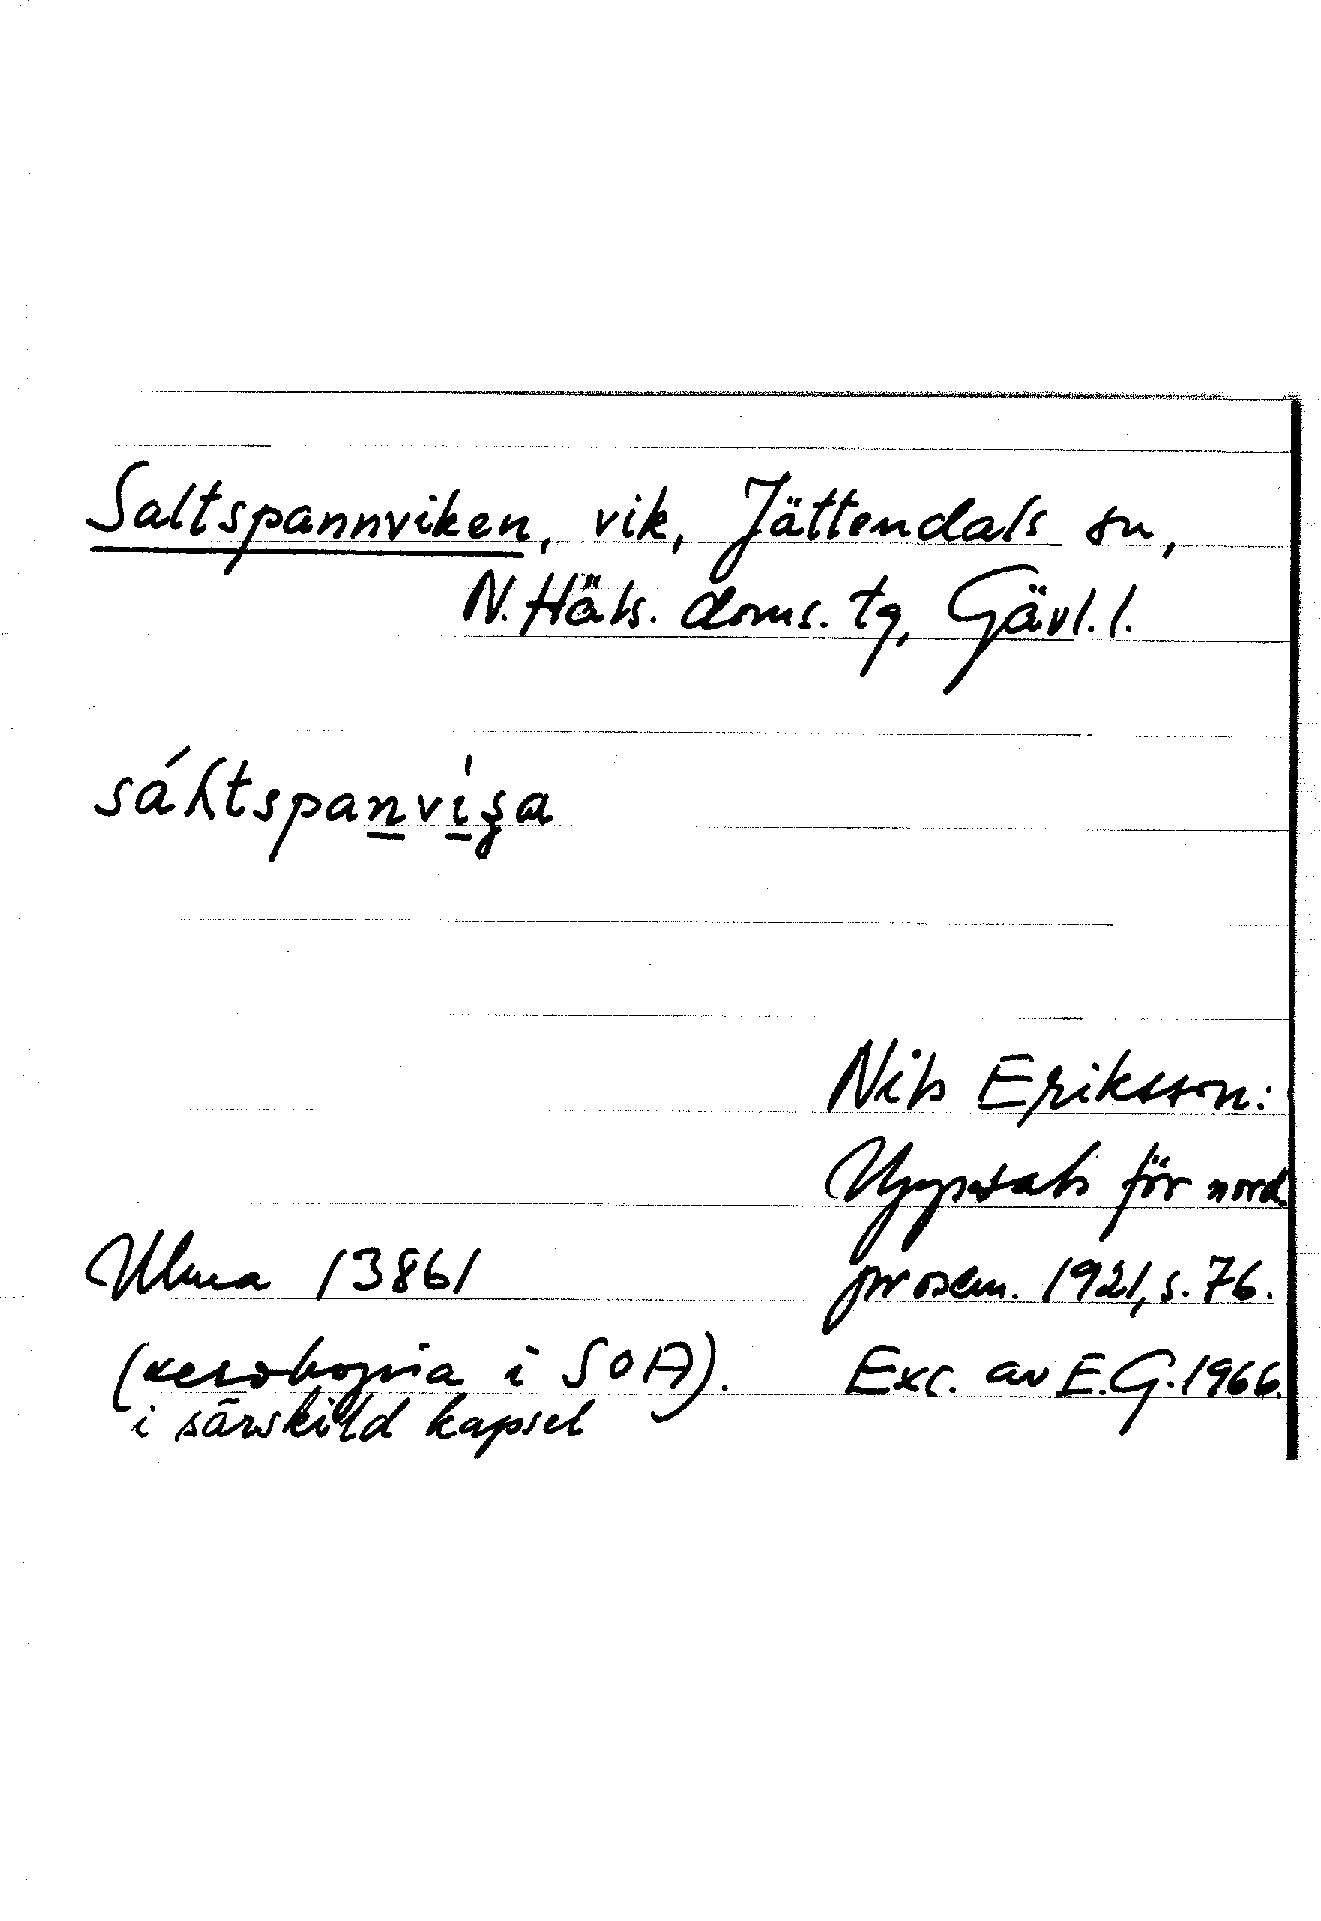 Saltspannviken, vik, Jättendals sn,
N. Häls. doms. tg, Gävl. l.
Nils Eriksson:
Uppsats för nord.
Ulma 13861
prosem. 1921, s. 76.
(xerokopia i SOA).
Exc. av E.G. 1966.
i särskild kapsel